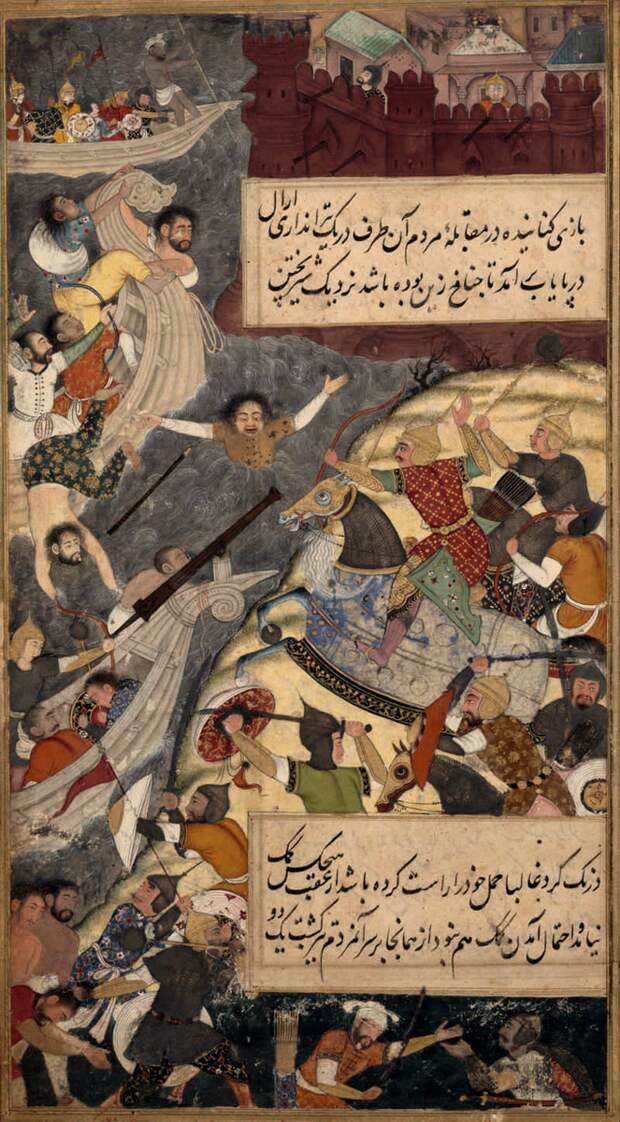 بازی کنانیده در مقابلهٔ مردم آن طرف دریک تیراندازی ارال
در پایاب برآمد تا جناغ زین بوده باشد نزدیک شیر پختن
درنک کرد غالبا حمل خود را راست کرده باشد از عقب هیچکس کمک
و احتمال آمدن کمک هم نبود از همانجا بر سر آنمردم تیز کشت یک دو